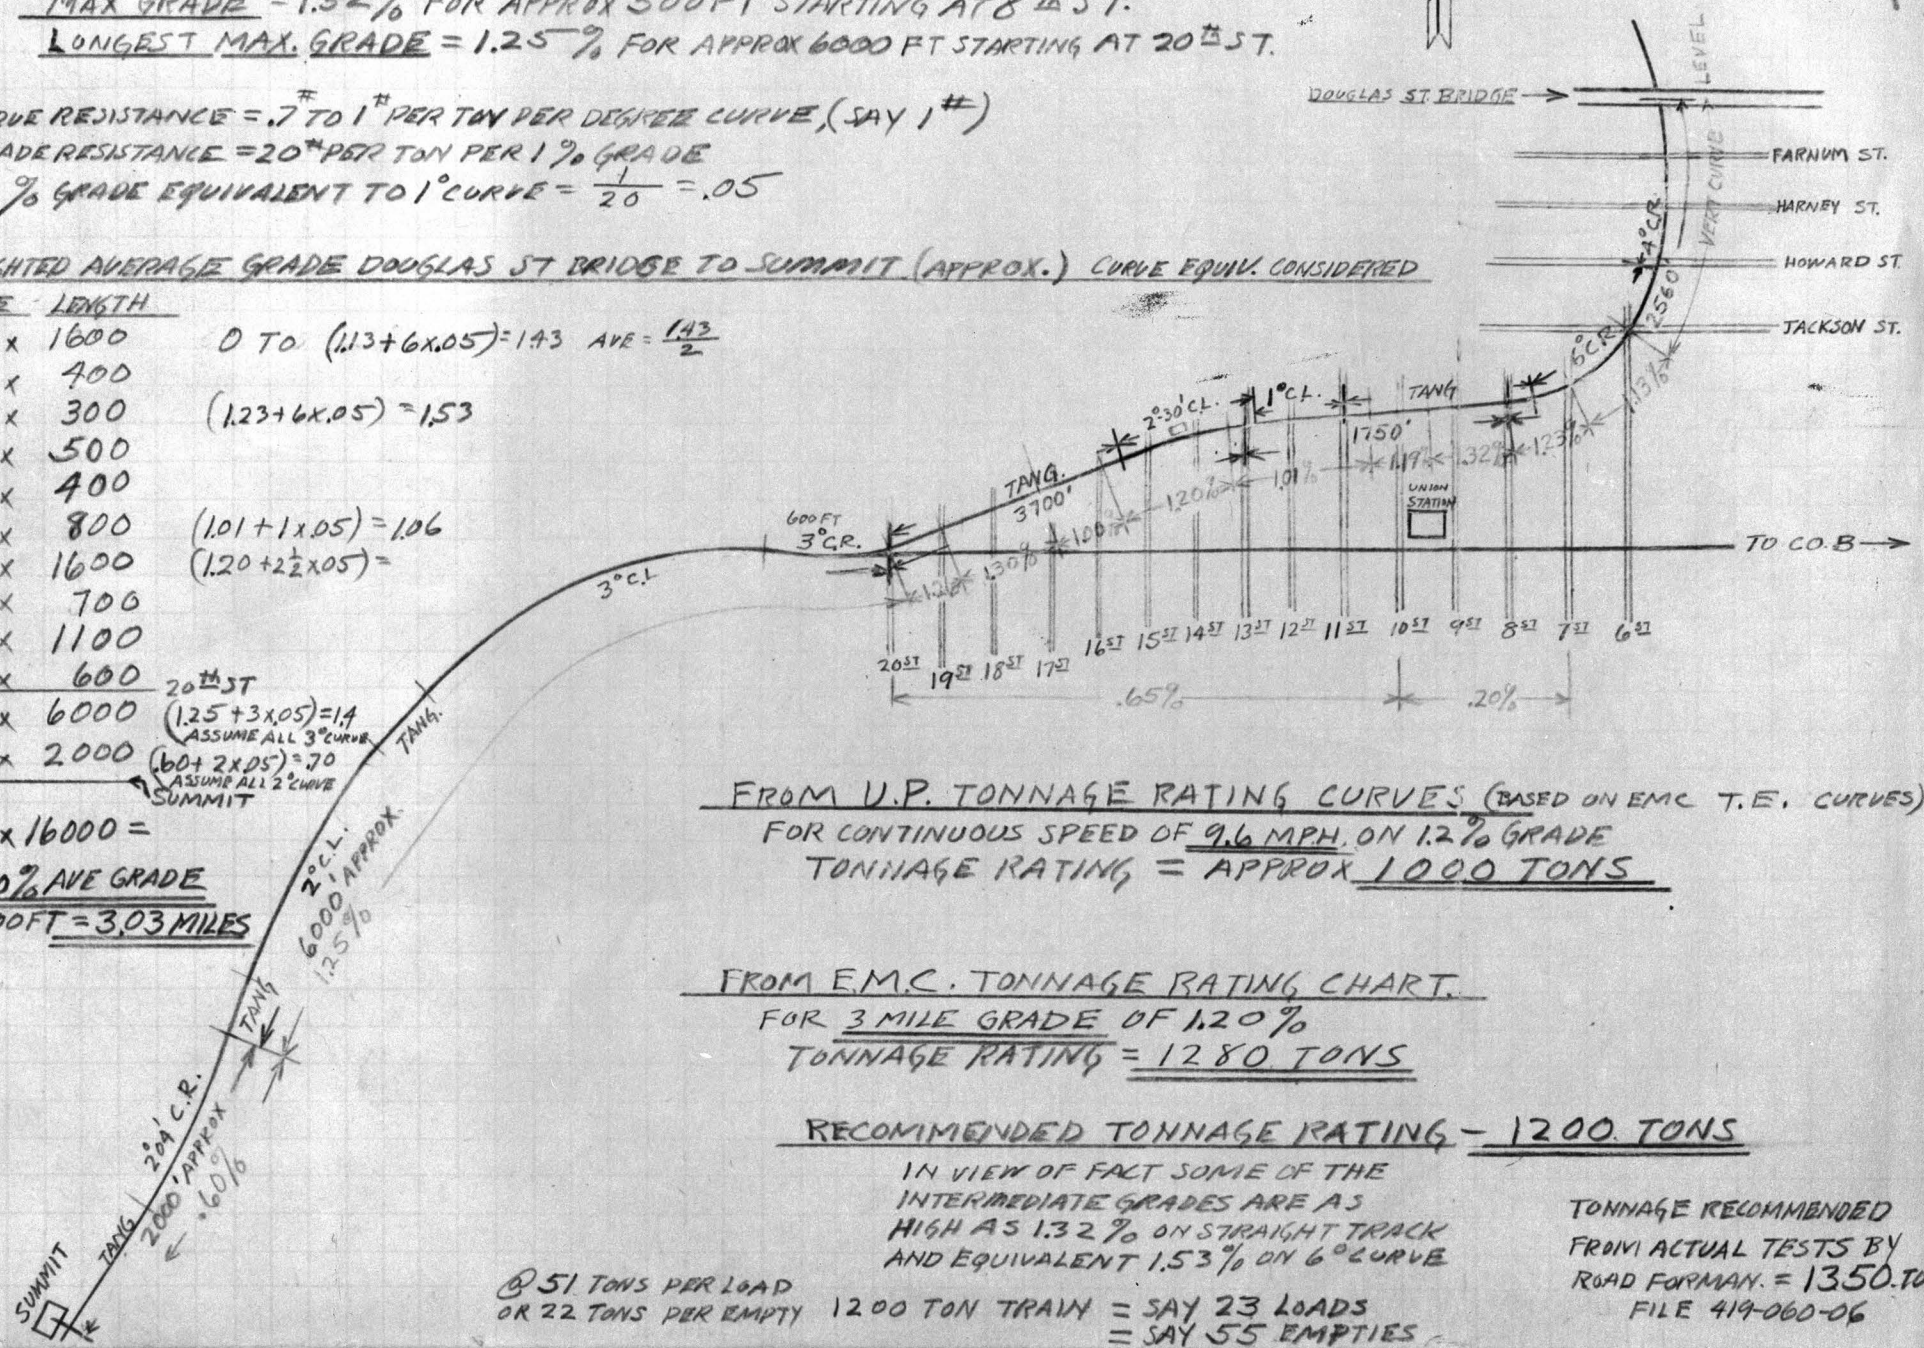 MAX GRADE - 1.32% FOR APPROX 300 FT STARTING AT 8TH ST.
LONGEST MAX. GRADE = 1.25% FOR APPROX 6000 FT STARTING AT 20TH ST.
RVE RESISTANCE = .7# TO 1# PER TON PER DEGREE CURVE, (SAY 1#)
ADE RESISTANCE = 20# PER TON PER 1% GRADE
% GRADE EQUIVALENT TO 1° CURVE = 1/20 = .05
GHTED AVERAGE GRADE DOUGLAS ST BRIDGE TO SUMMIT (APPROX.) CURVE EQUIV. CONSIDERED
E LENGTH
x 1600 0 TO (1.13+6x.05)=1.43 AVE = 1.43/2
x 400
x 300 (1.23+6x.05) = 1.53
x 500
x 400
x 800 (1.01+1x.05) = 1.06
x 1600 (1.20+2½x.05) =
x 700
x 1100
x 600 20TH ST
x 6000 (1.25+3x.05)=1.4
ASSUME ALL 3° CURVE
x 2000 (.60+2x.05)=.70
ASSUME ALL 2° CURVE
SUMMIT
x 16000 =
0% AVE GRADE
00FT = 3.03 MILES
DOUGLAS ST. BRIDGE
LEVEL
VERT CURVE
FARNUM ST.
HARNEY ST.
HOWARD ST.
JACKSON ST.
4° C.R.
2560'
6° C.R.
1.13%
1.23%
1.32%
1.19%
1.01%
1.20%
1.00%
1.30%
TANG
1750'
1° C.L.
2°-30' C.L.
TANG.
3700'
UNION
STATION
600 FT
3° C.R.
TO CO. B
3° C.L.
20ST 19ST 18ST 17ST 16ST 15ST 14ST 13ST 12ST 11ST 10ST 9ST 8ST 7ST 6ST
.65%
.20%
TANG.
2° C.L.
6000' APPROX.
1.25%
TANG
2°04' C.R.
2000' APPROX
.60%
TANG
SUMMIT
FROM U.P. TONNAGE RATING CURVES (BASED ON EMC T.E. CURVES)
FOR CONTINUOUS SPEED OF 9.6 MPH. ON 1.2% GRADE
TONNAGE RATING = APPROX 1000 TONS
FROM E.M.C. TONNAGE RATING CHART.
FOR 3 MILE GRADE OF 1.20%
TONNAGE RATING = 1280 TONS
RECOMMENDED TONNAGE RATING - 1200 TONS
IN VIEW OF FACT SOME OF THE
INTERMEDIATE GRADES ARE AS
HIGH AS 1.32% ON STRAIGHT TRACK
AND EQUIVALENT 1.53% ON 6° CURVE
@ 51 TONS PER LOAD
OR 22 TONS PER EMPTY
1200 TON TRAIN = SAY 23 LOADS
= SAY 55 EMPTIES
TONNAGE RECOMMENDED
FROM ACTUAL TESTS BY
ROAD FORMAN. = 1350. TO
FILE 419-060-06